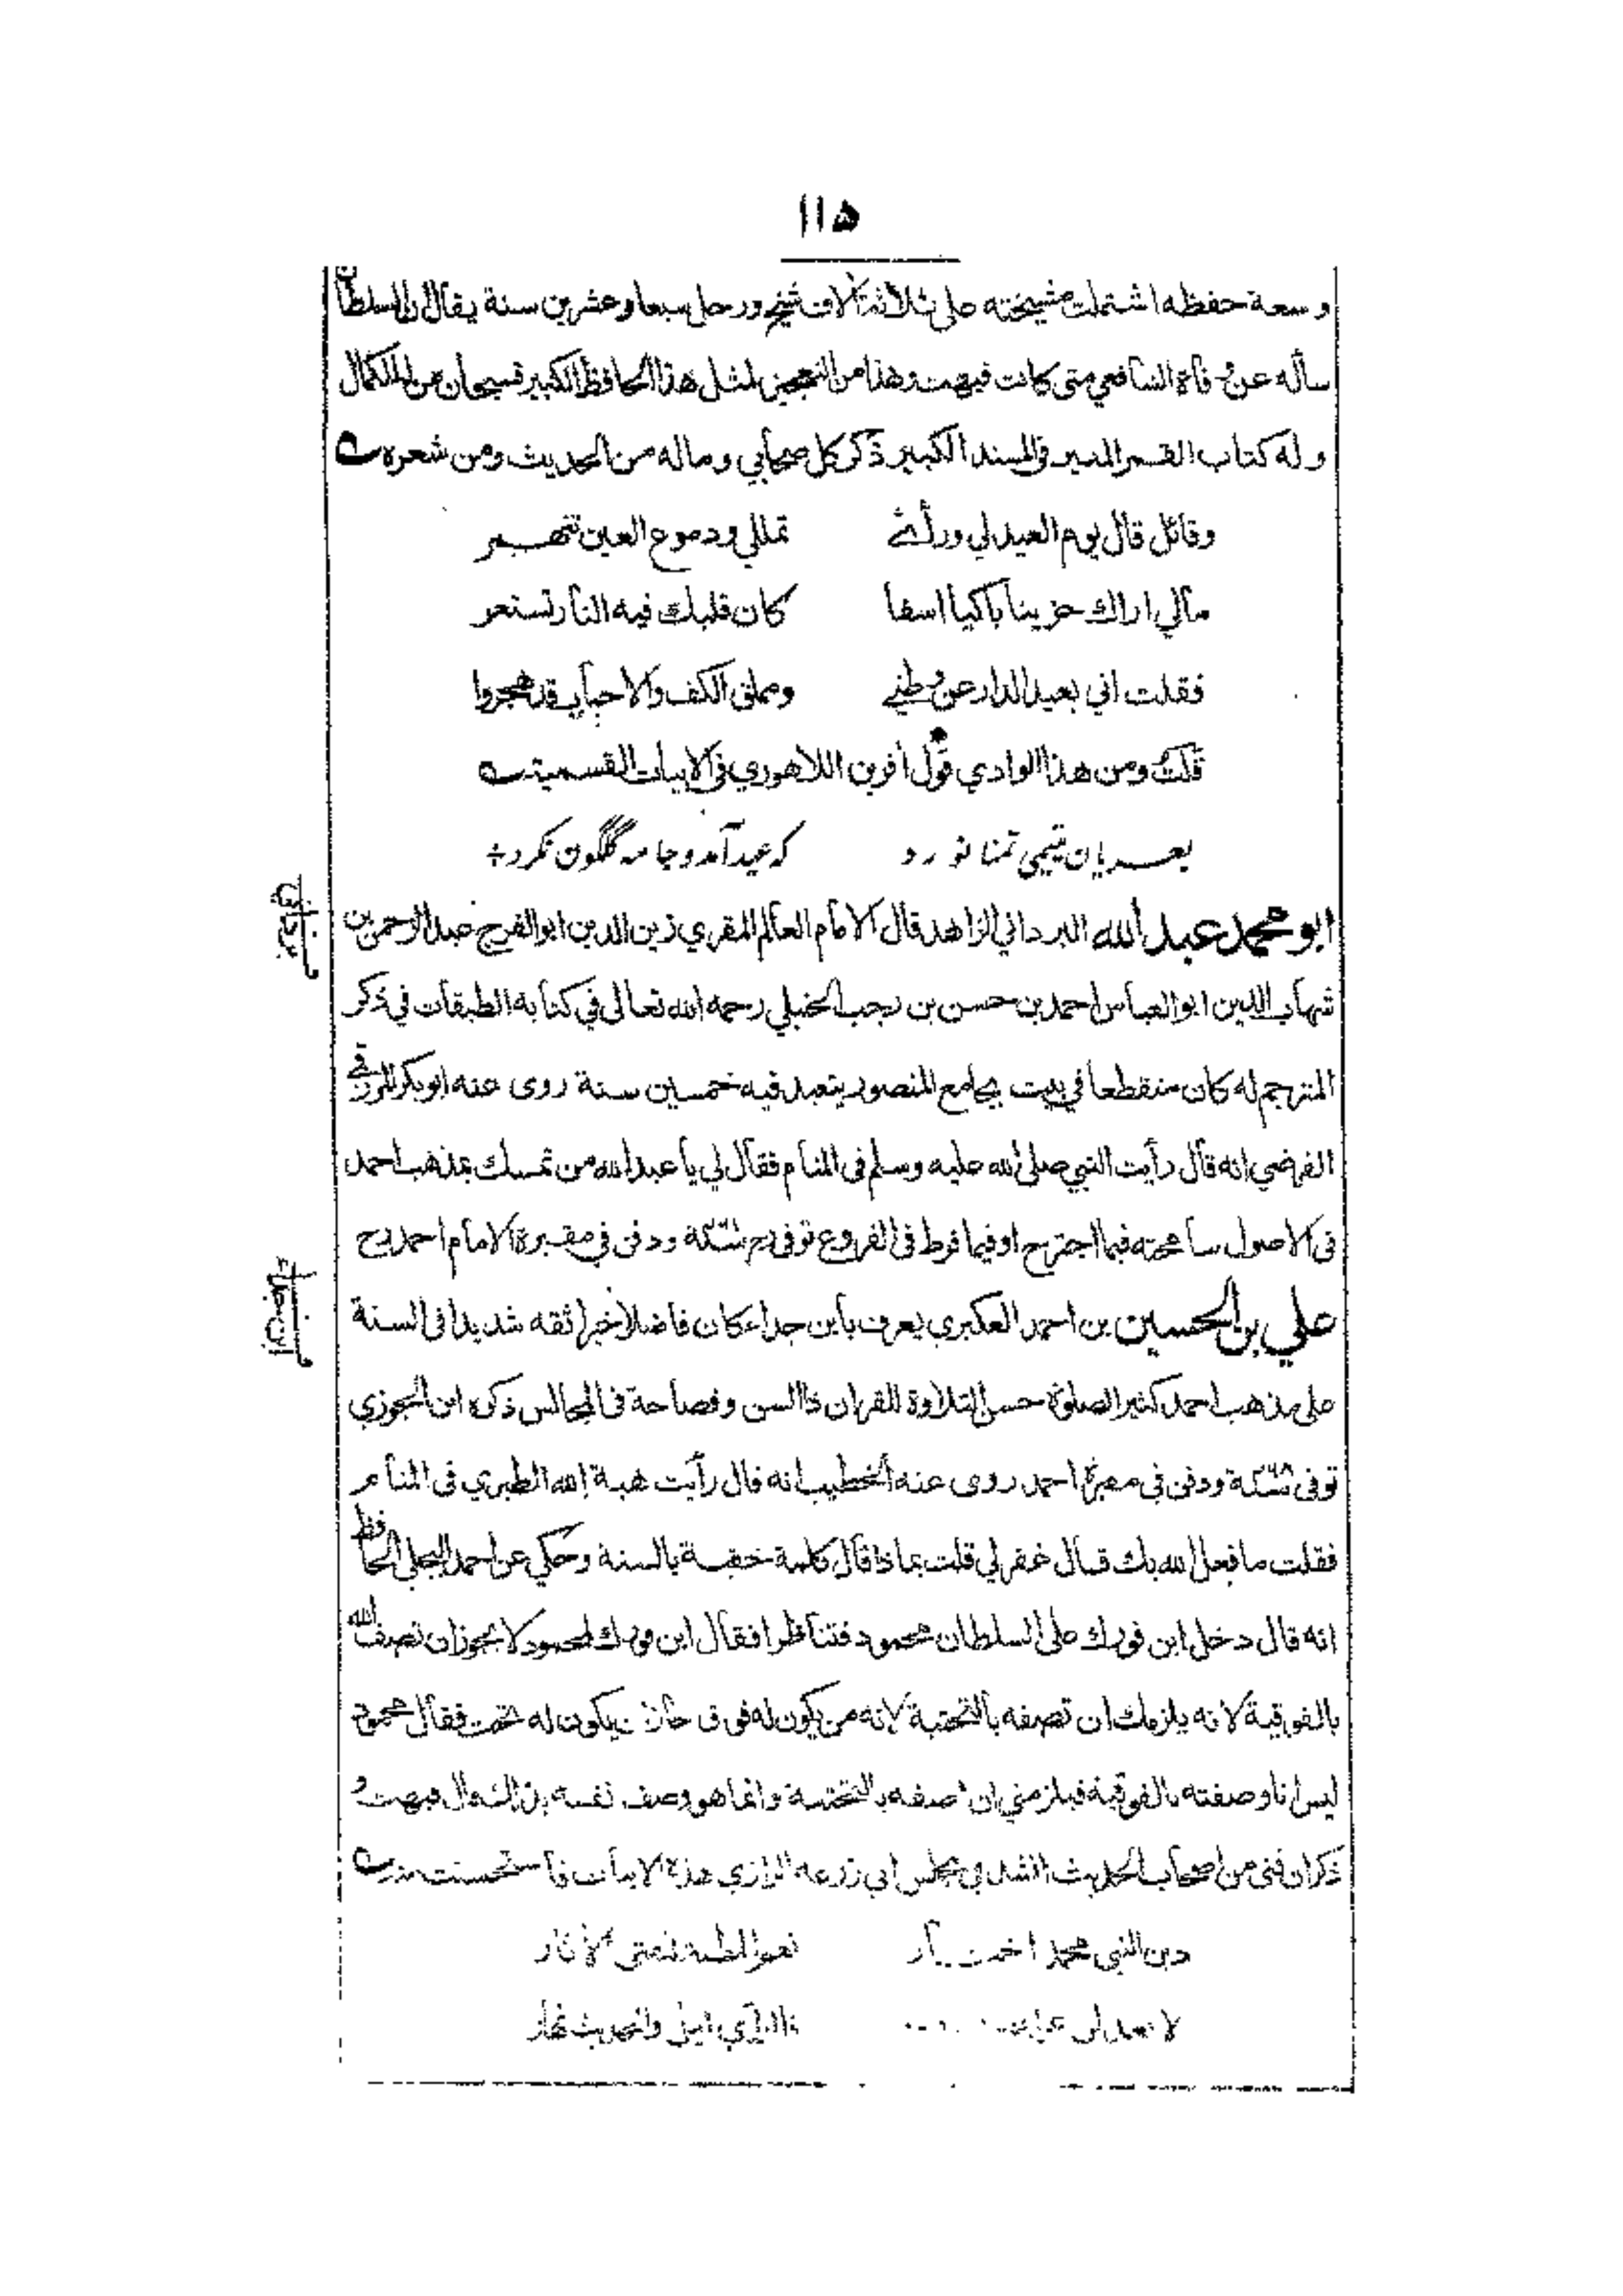 ١١٥
وسعة حفظه اشتملت مشيخته على ثلاثة آلاف شيخ ورحل سبعا وعشرين سنة يقال ان السلطان
سأله عن وفاة الشافعي متى كانت فبهت وهذا من التعجيز لمثل هذا الحافظ الكبير فسبحان من له الكمال
وله كتاب القمر المنير في المسند الكبير ذكر كل صحابي وماله من الحديث ومن شعره
وقائل قال يوم العيد لي ورأى تململي ودموع العين تنهمر
مالي اراك حزينا باكيا اسفا كان قلبك فيه النار تستعر
فقلت اني بعيد الدار عن وطني ومملق الكف والاحباب قد هجروا
قلت ومن هذا الوادي قول آفرين اللاهوري في الابيات القسمية
بعريان يتيمي تمنا نورد كه عيد آمد و جامه گلگون نكرد +
ابو محمد عبد الله البرداني الزاهد قال الامام العالم المقري زين الدين ابو الفرج عبد الرحمن بن
برداني
شهاب الدين ابو العباس احمد بن حسن بن رجب الحنبلي رحمه الله تعالى في كتابه الطبقات في ذكر
المترجم له كان منقطعا في بيت بجامع المنصور يتعبد فيه خمسين سنة روى عنه ابو بكر المزرفي
الفرضي انه قال رأيت النبي صلى الله عليه وسلم في المنام فقال لي يا عبد الله من تمسك بمذهب احمد
في الاصول سامحته فيما اجترح او فيما فرط في الفروع توفي رح سنة ودفن في مقبرة الامام احمد رح
علي بن الحسين بن احمد العكبري يعرف بابن جداء كان فاضلا خيرا ثقه شديدا في السنة
ابن جداء
على مذهب احمد كثير الصلوة حسن التلاوة للقران ذا لسن وفصاحة في المجالس ذكره ابن الجوزي
توفي سنة ودفن في مقبرة احمد روى عنه الخطيب انه قال رأيت هبة الله الطبري في المنام
فقلت ما فعل الله بك قال غفر لي قلت بماذا قال كلمة خفية بالسنة وحكي عن احمد البجلي الحافظ
انه قال دخل ابن فورك على السلطان محمود فتناظرا فقال ابن فورك لمحمود لا يجوز ان تصف الله
بالفوقية لانه يلزمك ان تصفه بالتحتية لانه من يكون له فوق جاز ان يكون له تحت فقال محمود
ليس انا وصفته بالفوقية فيلزمني ان اصفه بالتحتية وانما هو وصف نفسه بذلك قال فبهت و
ذكر ان فتى من اصحاب الحديث انشد في مجلس ابي زرعه الرازي هذه الابيات فاستحسنت منه
دين النبي محمد نعم المطية للفتى الآثار
فالرأي ليل والحديث نهار